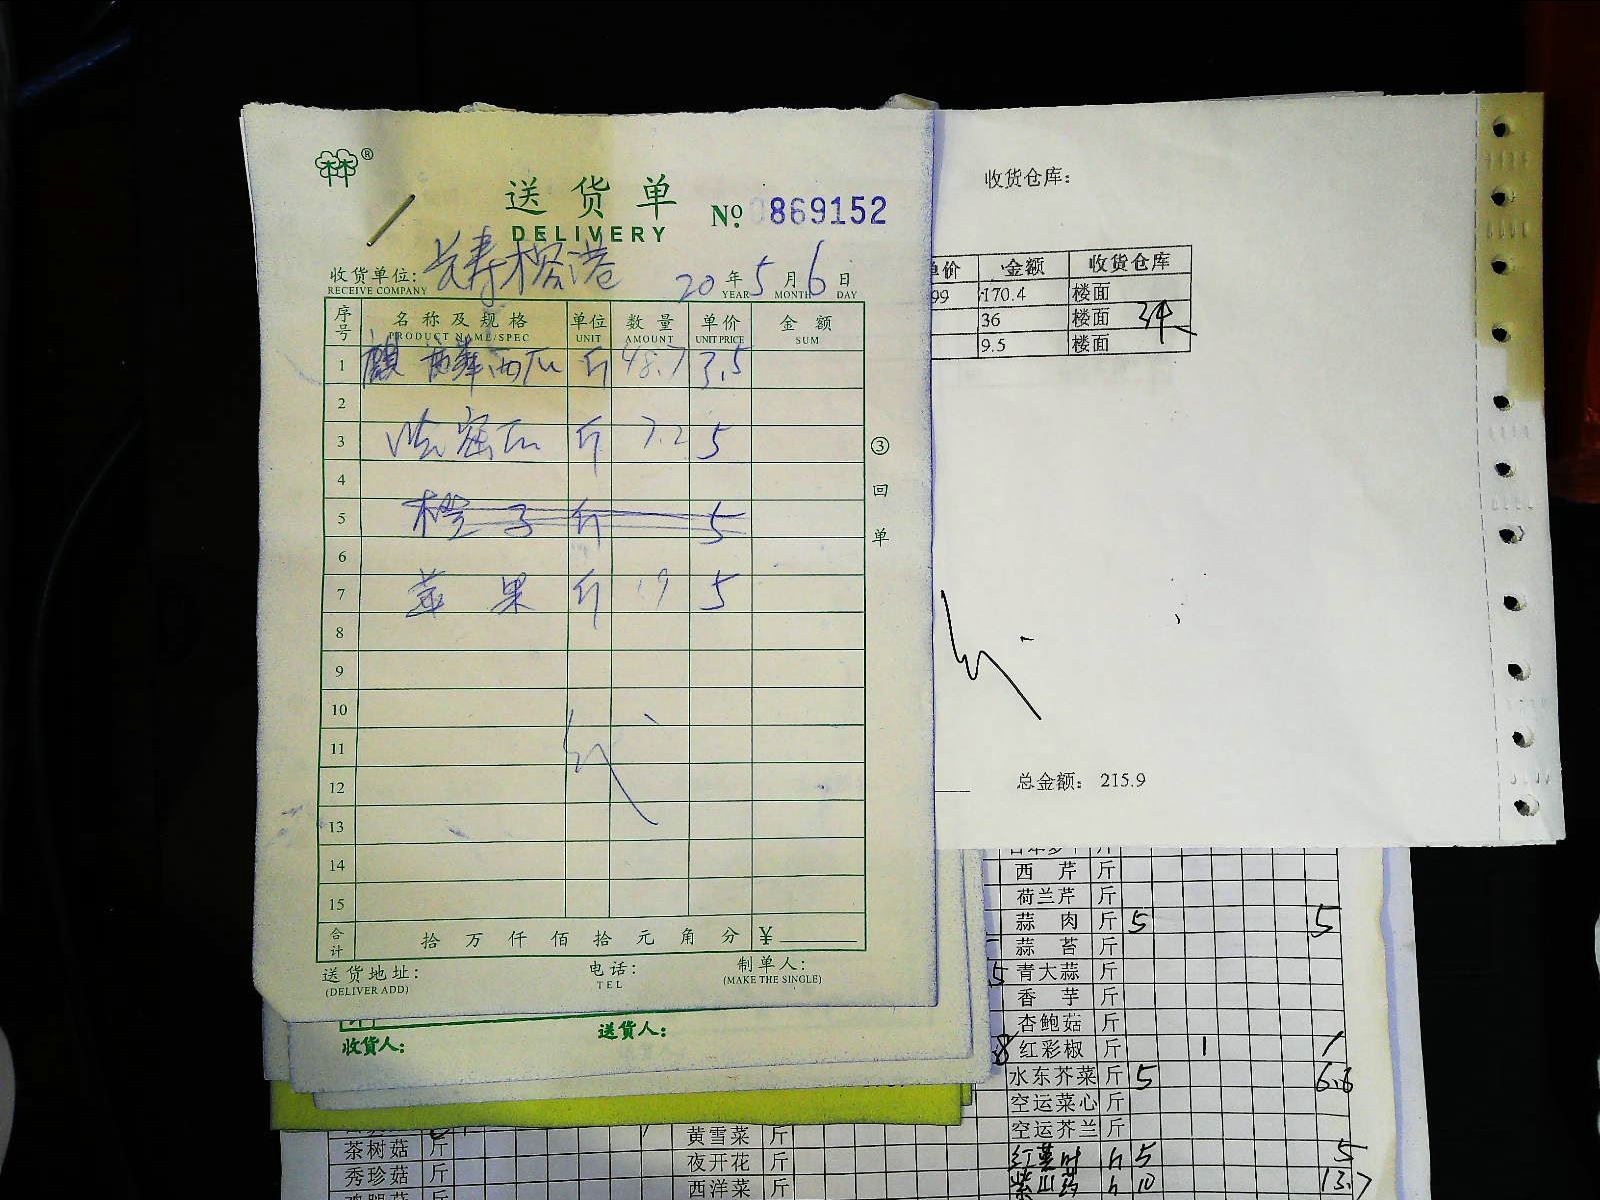 林林®
送货单
DELIVERY
No. 0869152
收货单位: 长寿榕港 20年5月6日
RECEIVE COMPANY YEAR MONTH DAY
序号 名称及规格 单位 数量 单价 金额
PRODUCT NAME/SPEC UNIT AMOUNT UNIT PRICE SUM
1 麒麟西瓜 斤 48.7 3.5
2
3 哈密瓜 斤 7.2 5
4
5 橙子 斤 5
6
7 苹果 斤 1.9 5
8
9
10
11
12
13
14
15
合计 拾万仟佰拾元角分 ¥
③回单
送货地址: 电话: 制单人:
(DELIVER ADD) TEL (MAKE THE SINGLE)
收货人: 送货人:
收货仓库:
单价 金额 收货仓库
99 170.4 楼面
36 楼面
9.5 楼面
总金额: 215.9
西芹 斤
荷兰芹 斤
蒜肉 斤 5 5
蒜苔 斤
5 青大蒜 斤
香芋 斤
杏鲍菇 斤
8 红彩椒 斤 1 1
水东芥菜 斤 5 6.6
空运菜心 斤
空运芥兰 斤
红薯叶 斤 5 5
紫山药 斤 10 13.7
茶树菇 斤 黄雪菜 斤
秀珍菇 斤 夜开花 斤
西洋菜 斤